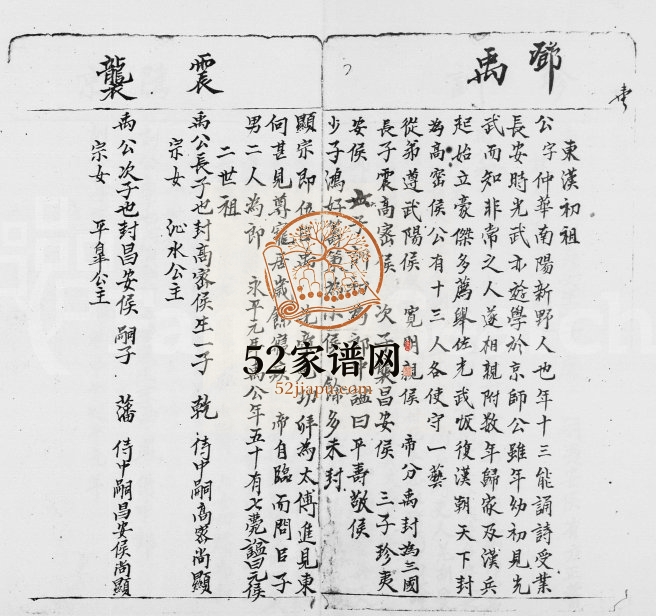 鄧禹
東漢初祖
公字仲華南陽新野人也年十三能誦詩受業
長安時光武亦遊學於京師公雖年幼初見光
武而知非常之人遂相親附数年歸家及漢兵
起始立豪傑多薦舉佐光武恢復漢朝天下封
為高密侯公有十三人各使守一藝
從弟遵武陽侯 寬明親侯 帝分禹封為三國
長子震高密侯 次子襲昌安侯 三子珍夷
安侯 六子訓 謚曰平壽敬侯
少子鴻好籌 小侯 餘多未封
顯宗即位 功拜為太傅進見東
向甚見尊寵居歲餘寢疾 帝自臨而問曰子
男二人為郎 永平元年禹公年五十有七薨謚曰元侯
二世祖
震
禹公長子也封高密侯生一子 乾 侍中嗣高密尚顯
宗女 沁水公主
襲
禹公次子也封昌安侯 嗣子 藩 侍中嗣昌安侯尚顯
宗女 平臯公主
52家谱网
52jiapu.com